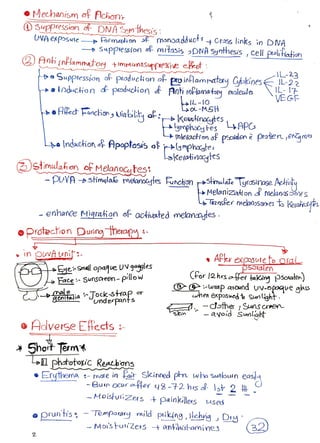 Mechanism of Action:-
① Suppression of DNA Synthesis:-
UVA exposure → Formation of monoadduct & cross links in DNA
→ Suppression of mitosis, DNA Synthesis, cell proliferation
② Anti inflammatory + immunosuppressive effect:
Suppression of production of Pro inflammatory Cytokines
IL-23
IL-23
IL-17
VEGF
Induction of production of Anti inflammatory molecule
IL-10
α-MSH
Affect Function, Viability of:
Keratinocytes
lymphocytes
APC
interaction of psoralen & protein, enzyme
Induction of Apoptosis of
lymphocytes
keratinocytes
③ Stimulation of Melanocytes:
- PUVA → stimulate melanocytes Function
Stimulate Tyrosinase Activity
Melanization of melanosomes
Transfer melanosomes to Keratinocytes
- enhance Migration of activated melanocytes.
Protection During therapy:-
in PUVA unit:-
Eye:- small opaque UV goggles
Face:- Sunscreen - pillow
male genitalia:- Jock-strap or underpants
After exposure to oral Psoralen
(For 12 hrs after taking psoralen)
:- wrap around UV-opaque glass
when exposured to sunlight.
Skin
- clother, Sunscreen
- avoid sunlight
Adverse Effects:-
* Short Term
① phototoxic Reactions
Erythema:- more in fair skinned ptn. who sunburn easily
- Burn occur after 48-72 hrs of 1st 2 ttt.
- Moisturizers + painkillers used
pruritis:- Temporary mild pricking, itching, Dry.
- Moisturizers + antihistamines
2
32